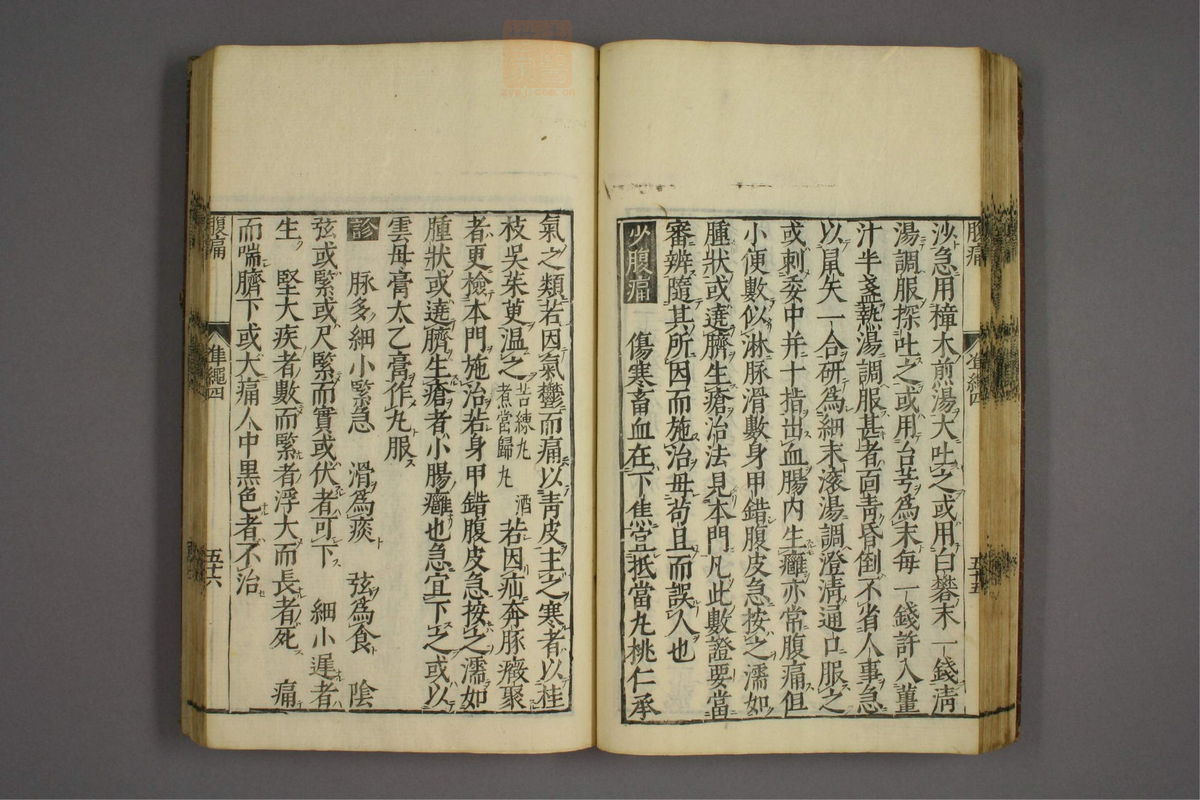 腹痛
準繩四
五十五
沙急用樟木煎湯大吐之或用白礬末一錢清
湯調服探吐之或用台芎為末每一錢許入薑
汁半盞熱湯調服甚者面靑昏倒不省人事急
以鼠矢一合研為細末滾湯調澄清通口服之
或刺委中并十指出血腸内生癰亦常腹痛但
小便數似淋脉滑數身甲錯腹皮急按之濡如
腫狀或遶臍生瘡治法見本門凡此數證要當
審辨隨其所因而施治毋苟且而誤人也
少腹痛 傷寒畜血在下焦宜抵當丸桃仁承
氣之類若因氣鬱而痛以靑皮主之寒者以桂
枝吳茱萸温之苦練丸酒煮當歸丸若因疝奔豚癥聚
者更檢本門施治若身甲錯腹皮急按之濡如
腫狀或遶臍生瘡者小腸癰也急宜下之或以
雲母膏太乙膏作丸服
診 脉多細小緊急 滑為痰 弦為食 陰
弦或緊或尺緊而實或伏者可下 細小遲者
生 堅大疾者數而緊者浮大而長者死 痛
而喘臍下或大痛人中黒色者不治
腹痛
準繩四
五十六